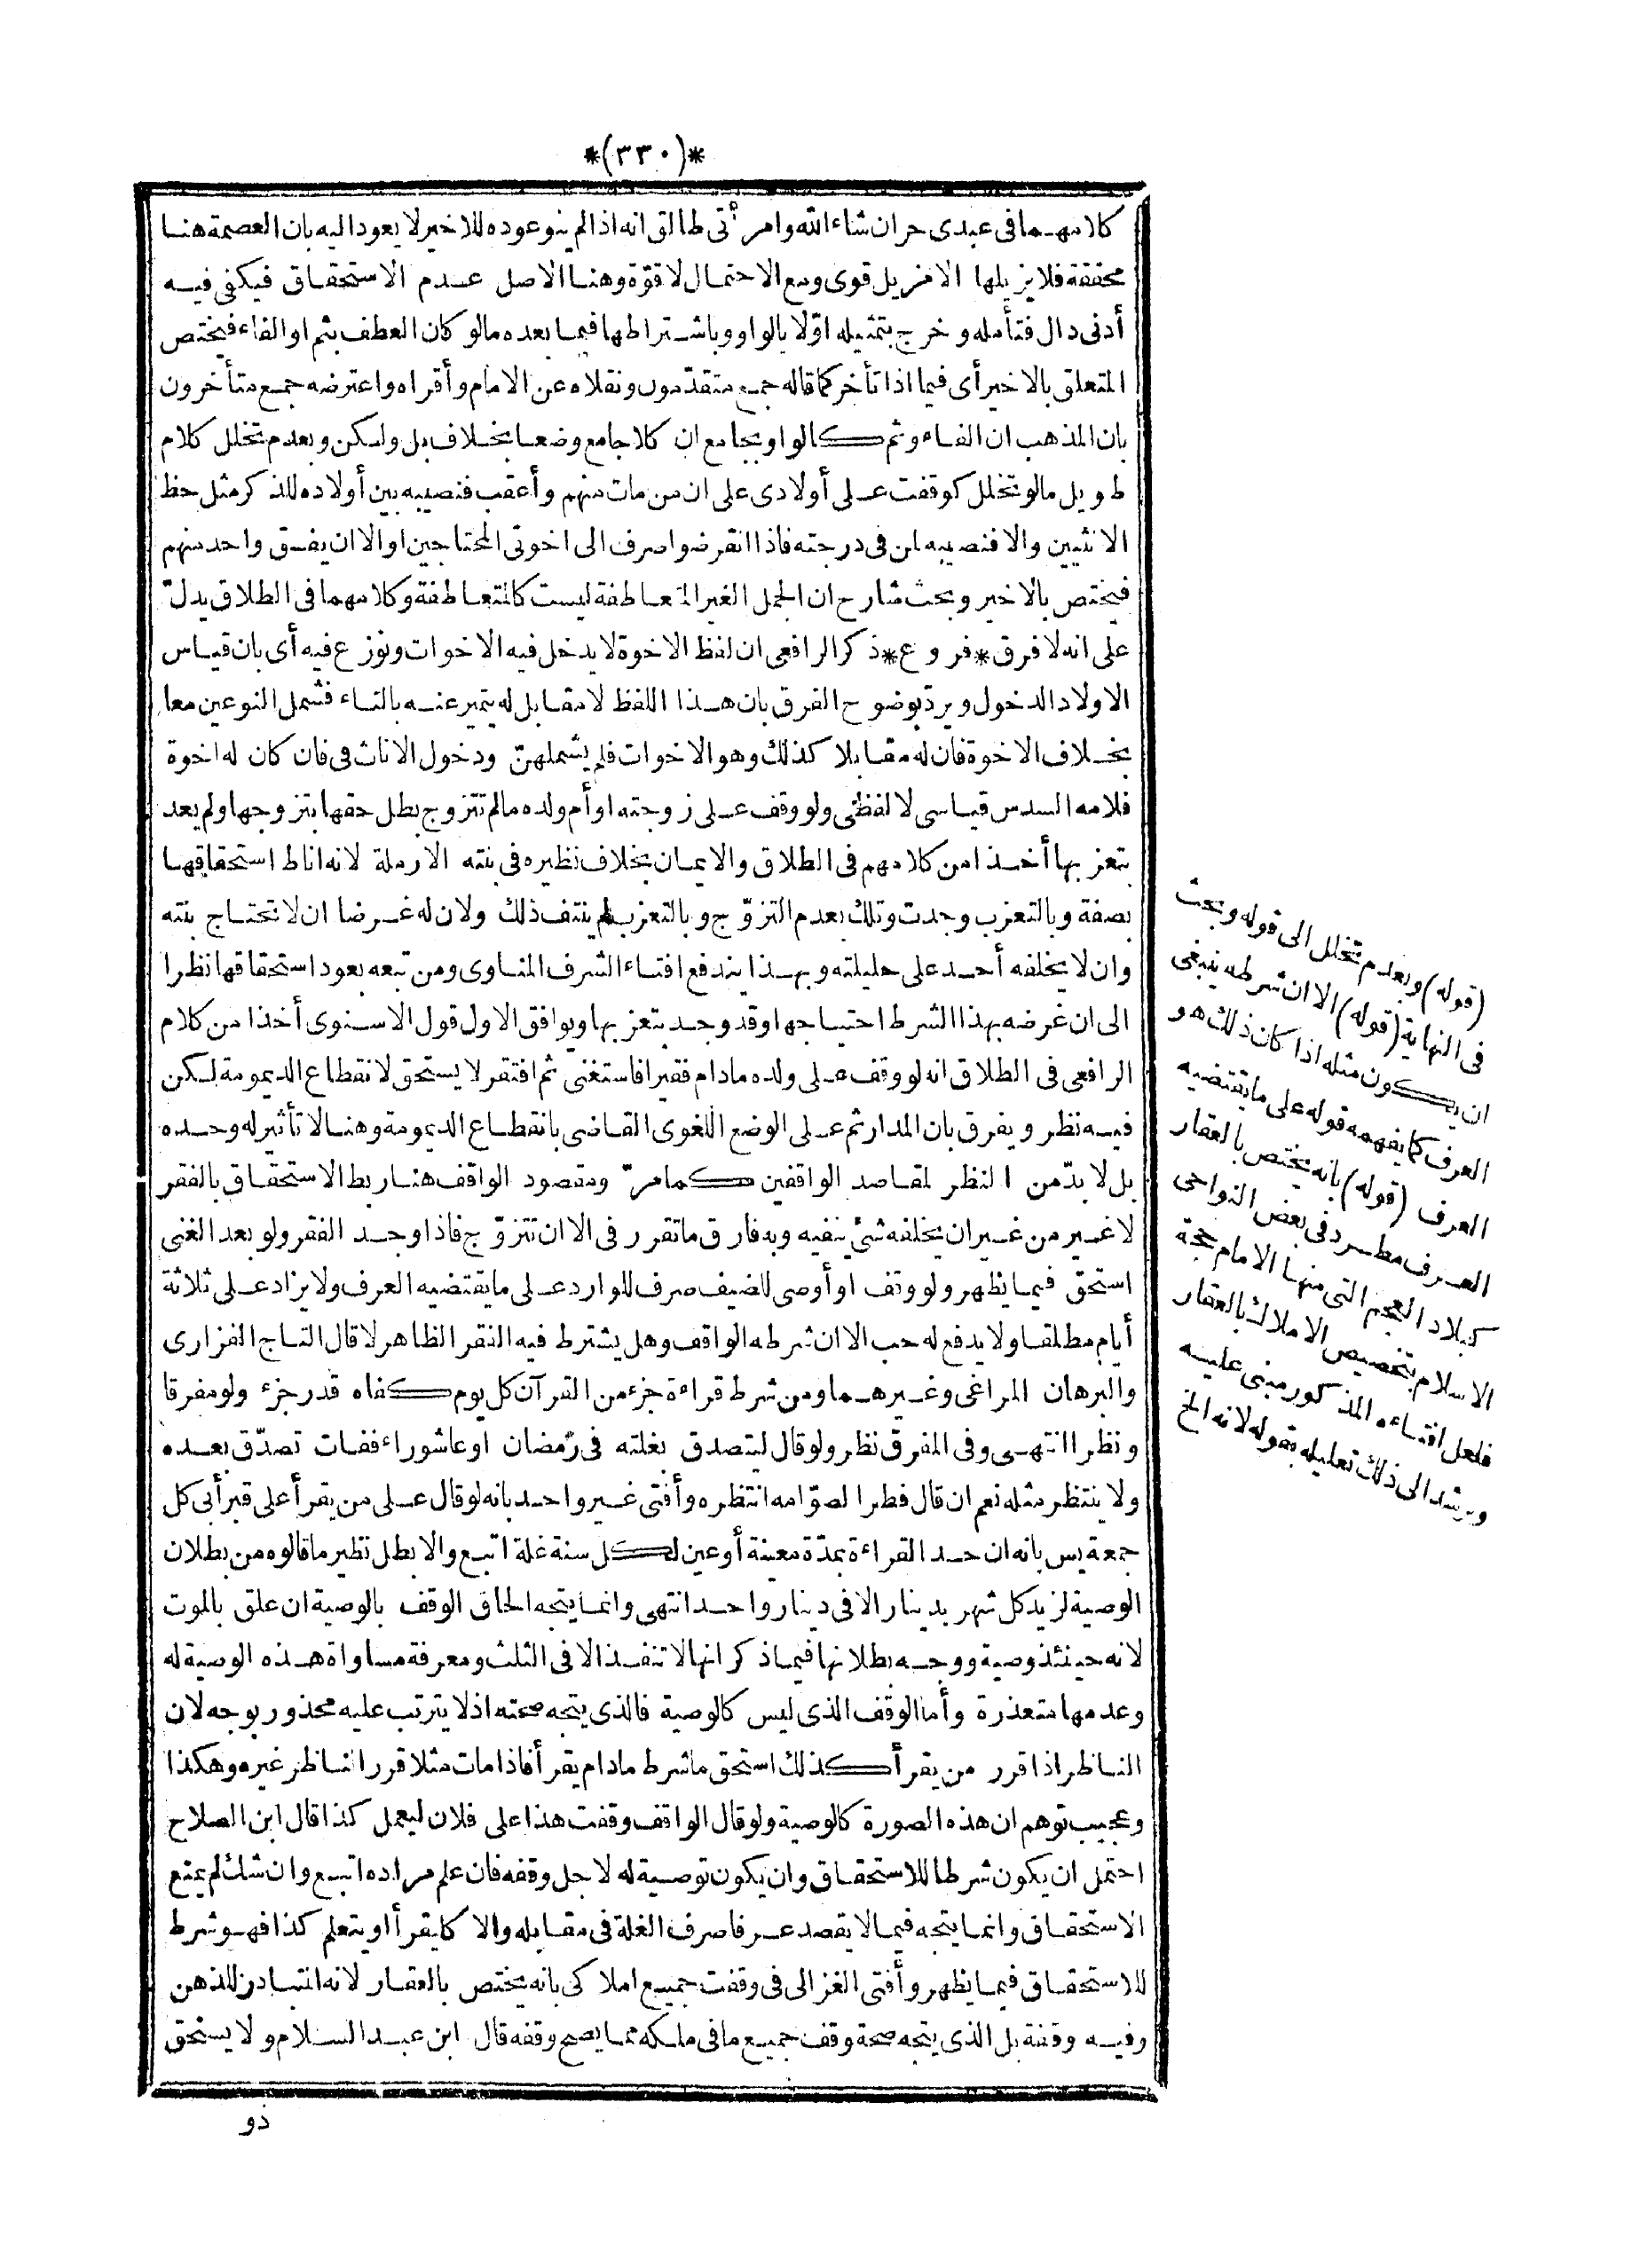 *(٣٣٠)*
كلامهما فى عبدى حر ان شاء الله وامرأتى طالق انه اذا لم ينو عوده للاخير لا يعود اليه بان العصمة هنا
محققة فلا يزيلها الا مزيل قوى ومع الاحتمال لا قوّة وهنا الاصل عدم الاستحقاق فيكفى فيه
أدنى دال فتأمله وخرج بتمثيله اوّلا بالواو وباشتراطها فيما بعده مالو كان العطف بثم اوالفاء فيختص
المتعلق بالاخير أى فيما اذا تأخر كما قاله جمع متقدّمون ونقلاه عن الامام وأقراه واعترضه جمع متأخرون
بان المذهب ان الفاء وثم كالواو بجامع ان كلا جامع وضعا بخلاف بل ولكن وبعدم تخلل كلام
طويل مالو تخلل كوقفت على أولادى على ان من مات منهم وأعقب فنصيبه بين أولاده للذكر مثل حظ
الانثيين والا فنصيبه لمن فى درجته فاذا انقرضوا صرف الى اخوتى المحتاجين اوالا ان يفسق واحد منهم
فيختص بالاخير وبحث شارح ان الجمل الغير المتعاطفة ليست كالمتعاطفة وكلامهما فى الطلاق يدلّ
على انه لا فرق *فروع* ذكر الرافعى ان لفظ الاخوة لا يدخل فيه الاخوات ونوزع فيه أى بان قياس
الاولاد الدخول ويردّ بوضوح الفرق بان هذا اللفظ لا مقابل له يتميز عنه بالتاء فشمل النوعين معا
بخلاف الاخوة فان له مقابلا كذلك وهو الاخوات فلم يشملهنّ ودخول الاناث فى فان كان له اخوة
فلامه السدس قياسى لا لفظى ولو وقف على زوجته اوأم ولده مالم تتزوج بطل حقها بتزوجها ولم يعد
بتعزبها أخذا من كلامهم فى الطلاق والايمان بخلاف نظيره فى بنته الارملة لانه اناط استحقاقها
بصفة وبالتعزب وجدت وتلك بعدم التزوّج وبالتعزب لم ينتف ذلك ولان له غرضا ان لا تحتاج بنته
وان لا يخلفه أحد على حليلته وبهذا يندفع افتاء الشرف المناوى ومن تبعه بعود استحقاقها نظرا
الى ان غرضه بهذا الشرط احتياجها وقد وجد بتعزبها ويوافق الاول قول الاسنوى أخذا من كلام
الرافعى فى الطلاق انه لو وقف على ولده مادام فقيرا فاستغنى ثم افتقر لا يستحق لانقطاع الديمومة لكن
فيه نظر ويفرق بان المدار ثم على الوضع اللغوى القاضى بانقطاع الديمومة وهنا لا تأثير له وحده
بل لا بدّ من النظر لمقاصد الواقفين كما مرّ ومقصود الواقف هنا ربط الاستحقاق بالفقر
لا غير من غير ان يخلفه شئ ينفيه وبه فارق ما تقرر فى الا ان تتزوّج فاذا وجد الفقر ولو بعد الغنى
استحقّ فيما يظهر ولو وقف اوأوصى للضيف صرف للوارد على ما يقتضيه العرف ولا يزاد على ثلاثة
أيام مطلقا ولا يدفع له حب الا ان شرطه الواقف وهل يشترط فيه الفقر الظاهر لا قال التاج الفزارى
والبرهان المراغى وغيرهما ومن شرط قراءة جزء من القرآن كل يوم كفاه قدر جزء ولو مفرقا
ونظرا انتهى وفى المفرق نظر ولو قال ليتصدق بغلته فى رمضان اوعاشوراء ففات تصدّق بعده
ولا ينتظر مثله نعم ان قال فطرا لصوّامه انتظره وأفتى غير واحد بانه لو قال على من يقرأ على قبر أبى كل
جمعة يس بانه ان حد القراءة بمدّة معينة أوعين لكل سنة غلة اتبع والا بطل نظير ما قالوه من بطلان
الوصية لزيد كل شهر بدينار الا فى دينار واحد انتهى وانما يتجه الحاق الوقف بالوصية ان علق بالموت
لانه حينئذ وصية ووجه بطلانها فيما ذكر انها لا تنفذ الا فى الثلث ومعرفة مساواة هذه الوصية له
وعدمها متعذرة وأما الوقف الذى ليس كالوصية فالذى يتجه صحته اذ لا يترتب عليه محذور بوجه لان
الناظر اذا قرر من يقرأ كذلك استحق ما شرط مادام يقرأ فاذا مات مثلا قرر الناظر غيره وهكذا
وعجيب توهم ان هذه الصورة كالوصية ولو قال الواقف وقفت هذا على فلان ليعمل كذا قال ابن الصلاح
احتمل ان يكون شرطا للاستحقاق وان يكون توصية له لاجل وقفه فان علم مراده اتبع وان شك لم يمنع
الاستحقاق وانما يتجه فيما لا يقصد عرفا صرف الغلة فى مقابله والا كايقرأ اويتعلم كذا فهو شرط
للاستحقاق فيما يظهر وأفتى الغزالى فى وقفت جميع املاكى بانه يختص بالعقار لانه المتبادر للذهن
وفيه وقفة بل الذى يتجه صحة وقف جميع ما فى ملكه مما يصح وقفه قال ابن عبد السلام ولا يستحق
ذو
(قوله) وبعدم تخلل الى قوله وبحث
فى النهاية (قوله) الا ان شرطه ينبغى
ان يكون مثله اذا كان ذلك هو
العرف كما يفهمه قوله على ما يقتضيه
العرف (قوله) بانه يختص بالعقار
العرف مطرد فى بعض النواحى
كبلاد العجم التى منها الامام حجة
الاسلام بتخصيص الاملاك بالعقار
فلعل افتاءه المذكور مبنى عليه
ويرشد الى ذلك تعليله بقوله لانه الخ